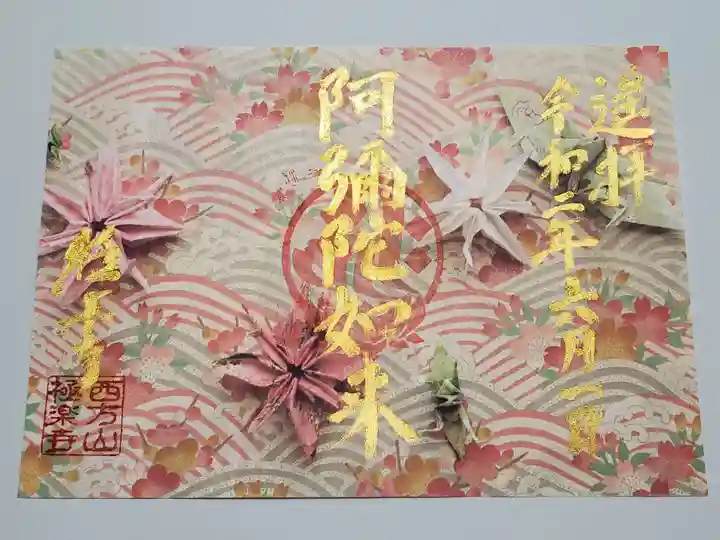 遥拝
令和二年六月一日
阿彌陀如来
極楽寺
西方山
極楽寺